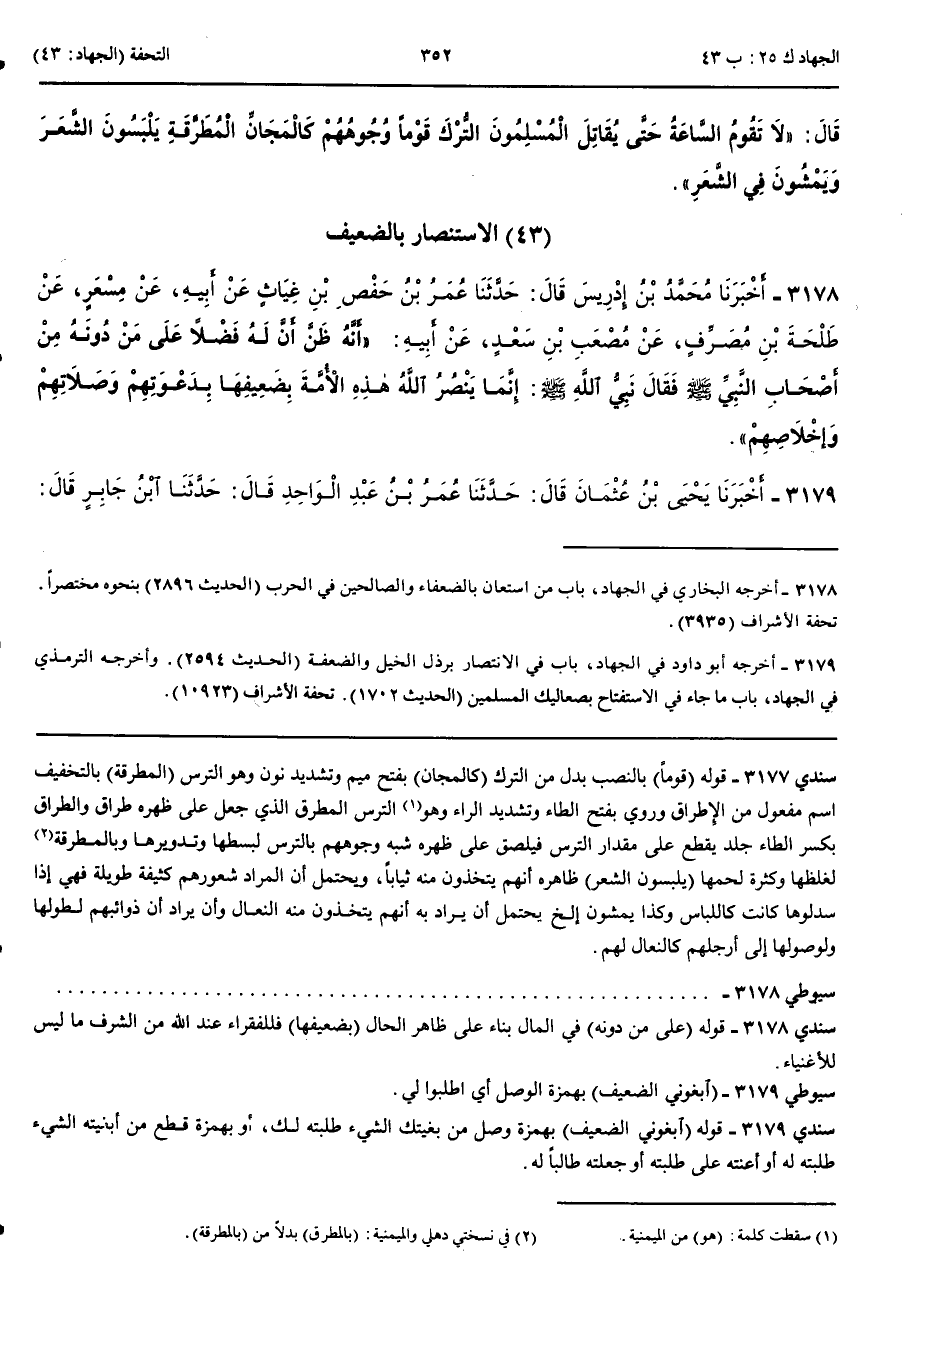 الجهاد ك ٢٥: ب ٤٣ ٣٥٢ التحفة (الجهاد: ٤٣)
قَالَ: «لَا تَقُومُ السَّاعَةُ حَتَّى يُقَاتِلَ الْمُسْلِمُونَ التُّرْكَ قَوْماً وُجُوهُهُمْ كَالْمَجَانِّ الْمُطَرَّقَةِ يَلْبَسُونَ الشَّعَرَ
وَيَمْشُونَ فِي الشَّعَرِ».
(٤٣) الاستنصار بالضعيف
٣١٧٨ ـ أَخْبَرَنَا مُحَمَّدُ بْنُ إِدْرِيسَ قَالَ: حَدَّثَنَا عُمَرُ بْنُ حَفْصِ بْنِ غِيَاثٍ عَنْ أَبِيهِ، عَنْ مِسْعَرٍ، عَنْ
طَلْحَةَ بْنِ مُصَرِّفٍ، عَنْ مُصْعَبِ بْنِ سَعْدٍ، عَنْ أَبِيهِ: «أَنَّهُ ظَنَّ أَنَّ لَهُ فَضْلاً عَلَى مَنْ دُونَهُ مِنْ
أَصْحَابِ النَّبِيِّ ﷺ فَقَالَ نَبِيُّ ٱللَّهِ ﷺ: إِنَّمَا يَنْصُرُ ٱللَّهُ هٰذِهِ الْأُمَّةَ بِضَعِيفِهَا بِدَعْوَتِهِمْ وَصَلَاتِهِمْ
وَإِخْلَاصِهِمْ».
٣١٧٩ ـ أَخْبَرَنَا يَحْيَى بْنُ عُثْمَانَ قَالَ: حَدَّثَنَا عُمَرُ بْنُ عَبْدِ الْوَاحِدِ قَالَ: حَدَّثَنَا ٱبْنُ جَابِرٍ قَالَ:
٣١٧٨ ـ أخرجه البخاري في الجهاد، باب من استعان بالضعفاء والصالحين في الحرب (الحديث ٢٨٩٦) بنحوه مختصراً.
تحفة الأشراف (٣٩٣٥).
٣١٧٩ ـ أخرجه أبو داود في الجهاد، باب في الانتصار برذل الخيل والضعفة (الحديث ٢٥٩٤). وأخرجه الترمذي
في الجهاد، باب ما جاء في الاستفتاح بصعاليك المسلمين (الحديث ١٧٠٢). تحفة الأشراف (١٠٩٢٣).
سندي ٣١٧٧ ـ قوله (قوماً) بالنصب بدل من الترك (كالمجان) بفتح ميم وتشديد نون وهو الترس (المطرقة) بالتخفيف
اسم مفعول من الإطراق وروي بفتح الطاء وتشديد الراء وهو(١) الترس المطرق الذي جعل على ظهره طراق والطراق
بكسر الطاء جلد يقطع على مقدار الترس فيلصق على ظهره شبه وجوههم بالترس لبسطها وتدويرها وبالمطرقة(٢)
لغلظها وكثرة لحمها (يلبسون الشعر) ظاهره أنهم يتخذون منه ثياباً، ويحتمل أن المراد شعورهم كثيفة طويلة فهي إذا
سدلوها كانت كاللباس وكذا يمشون إلخ يحتمل أن يراد به أنهم يتخذون منه النعال وأن يراد أن ذوائبهم لطولها
ولوصولها إلى أرجلهم كالنعال لهم.
سيوطي ٣١٧٨ ـ ............................................................
سندي ٣١٧٨ ـ قوله (على من دونه) في المال بناء على ظاهر الحال (بضعيفها) فللفقراء عند الله من الشرف ما ليس
للأغنياء.
سيوطي ٣١٧٩ ـ (ٱبغوني الضعيف) بهمزة الوصل أي اطلبوا لي.
سندي ٣١٧٩ ـ قوله (ٱبغوني الضعيف) بهمزة وصل من بغيتك الشيء طلبته لك، أو بهمزة قطع من أبنيته الشيء
طلبته له أو أعنته على طلبته أو جعلته طالباً له.
(١) سقطت كلمة: (هو) من الميمنية. (٢) في نسختي دهلي والميمنية: (بالمطرق) بدلاً من (بالمطرقة).